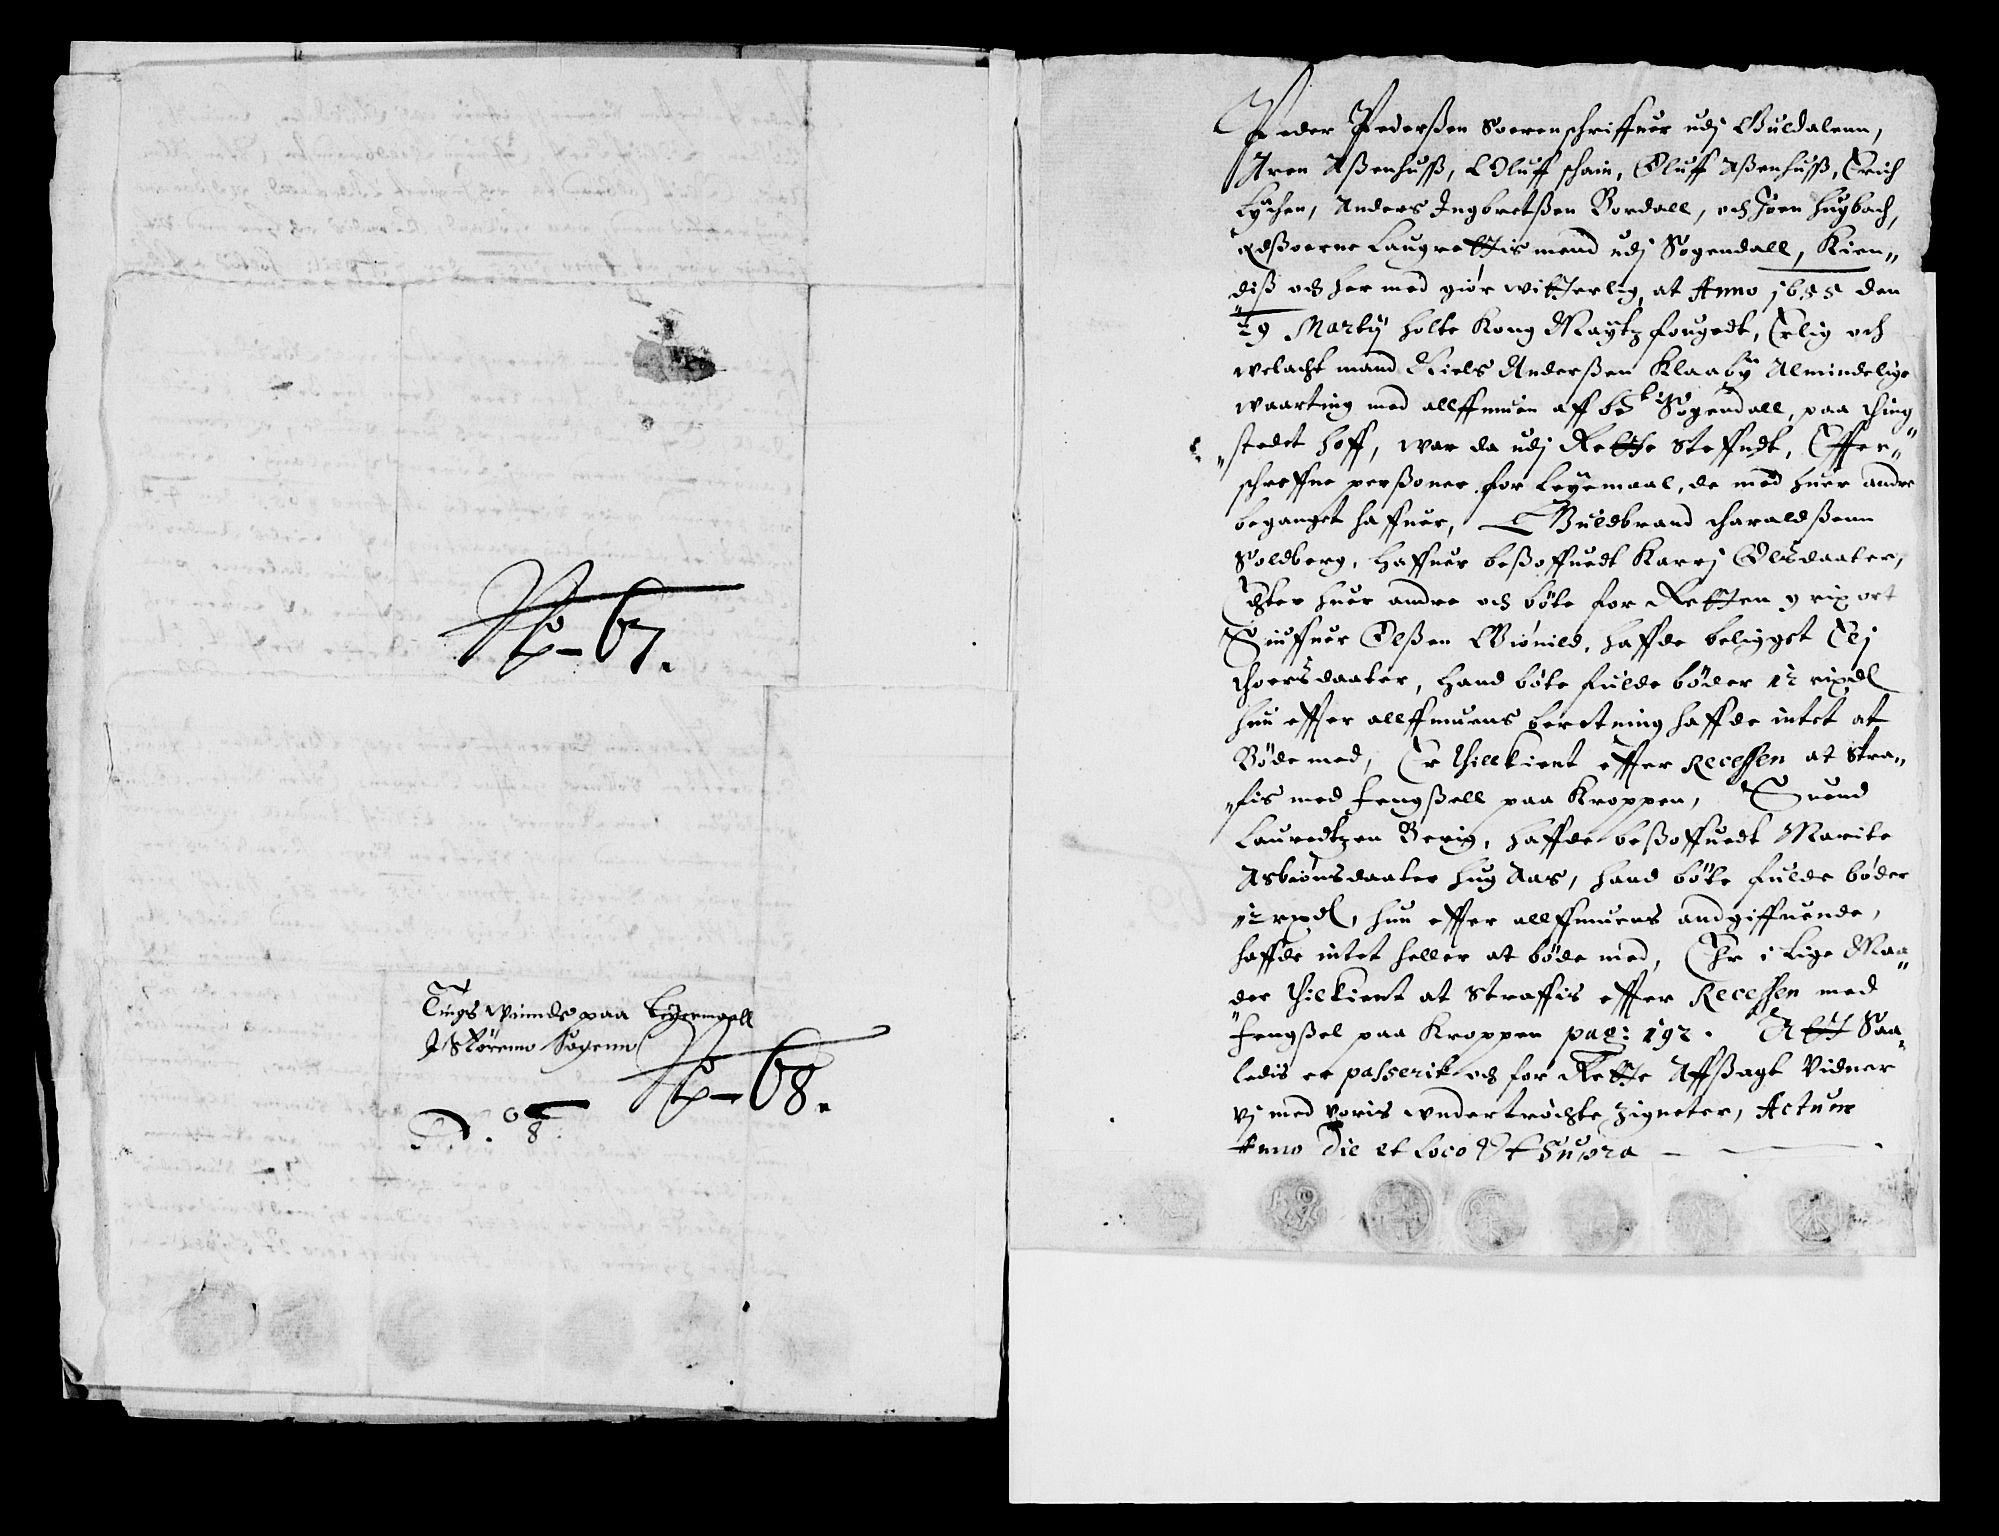 No – 67.
Tings Winnde paa Leyermaall
J Støreno Sogenn
No – 68.
Peder Pederßen Soerenschriffuer udj Guldalenn,
Aren Aßenhuß, Oluff schain, Oluff Aßenhuß, Erich
Lychen, Anders Jngbretßen Bordall, och Joen Hugbach,
Edßoerne Laugrettis mend udj Sogendall, Kien„
„diß och her med giør witterlig, at Anno 1655 den
29 Martij holte Kong Maytz fougedt, Erlig och
welacht mand Niels Anderßen Klaaby Almindelige
waarting med allffmuen aff be.te Sogendall, paa thing
„stedet Hoff, war da udj Rette Steffndt, Effter„
schreffne perßoner for Leyemaal, de med huer andre
beganget haffuer, Guldbrand Haraldßenn
Soldberg, Haffuer beßoffuedt Karrj Olsdaater,
Echter huer andre och bøte for Retten 9 rix ort
Siuffuer Olßen Giønild, haffde beligget Elj
thoersdaater, Hand bøte fulde bøder 12 rixdl
hun effter allffmuens beretning haffde intet at
Bøde med, Er thillkient effter Recessen at Stra„
„fis med fengßell paa Kroppen, Suend
Lauredtzen Berig, haffde beßoffuedt Marite
Asbiønsdaater Hug Aas, hand bøte fulde bøder
12 rixdl, hun effter allffmuens andgiffuende,
haffde intet heller at bøde med, Ehr i Lige Maa„
„der thilkient at Straffis effter Recessen med
fengßel paa Kroppen pag: 192. Att Saa„
ledis er passerit och for Rette Affßagt Vidner
vj med voris wndertrøchte Zigneter, Actum
Anno Die et Loco Ut Supra